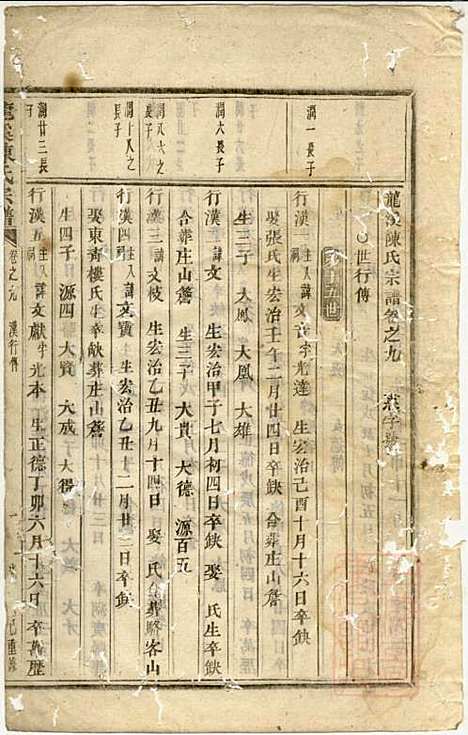 龍溪陳氏宗譜卷之九
○世行傳
第十五世
潤一長子
行漢一 主人祠 諱文 字光達 生宏治己酉十月十六日卒缺
娶張氏生宏治壬午二月廿四日卒缺 合葬庄山簷
生三子 大鳳 大凰 大雄
潤六長子
行漢二 諱文 生宏治甲子七月初四日卒缺 娶 氏生卒缺
合葬庄山簷 生三子 大貴 大德 源百五
潤八六之長子
行漢三 諱文枝 生宏治乙丑九月十四日 娶 氏 合葬駱客山
潤十八之長子
行漢四 主人祠 諱文寶 生宏治乙丑十二月廿三日卒缺
娶東齊樓氏生卒缺葬庄山簷
生四子 源四 大寶 大成 大得
潤廿三長子
行漢五 主人祠 諱文獻 字光本 生正德丁卯六月十六日卒萬歷
龍溪陳氏宗譜
卷之九 漢行傳
重修